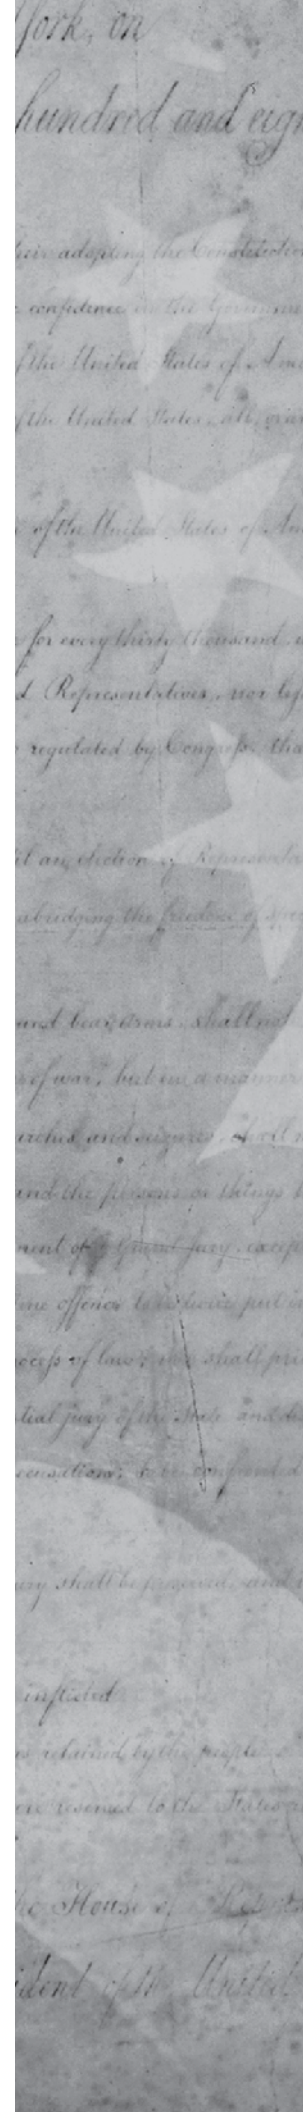 York, on
hundred and eigh
their adopting the Constitution
confidence in the Governme
of the United States of Ame
of the United States, all, or an
of the United States of Am
for every thirty thousand,
Representatives, nor
regulated by Congress, tha
an election of Representa
abridging the freedom of spee
and bear arms, shall not
of war, but in a manner
searches and seizures, shall n
and the persons or things
of a Grand Jury, excep
offence to be twice put in
process of law; nor shall pri
jury of the State and
accusation; to be confronted
jury shall be preserved, and
inflicted
retained by the people
are reserved to the States
the House of Repres
ident of the United